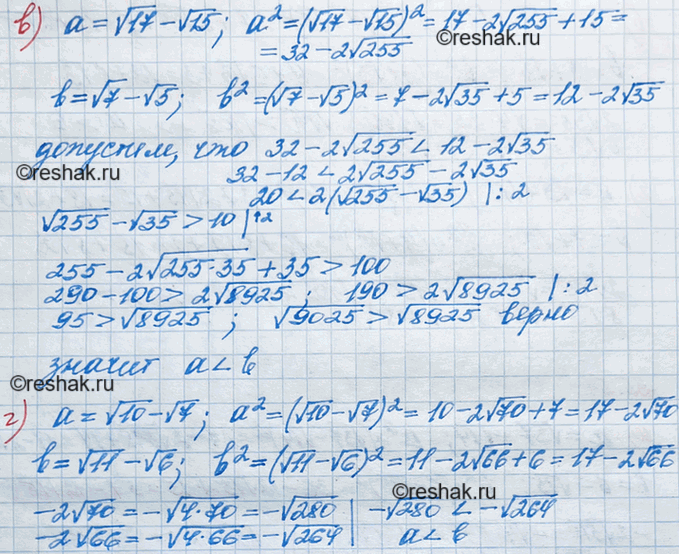 в) a = √17 - √15; a² = (√17 - √15)² = 17 - 2√255 + 15 =
= 32 - 2√255
b = √7 - √5; b² = (√7 - √5)² = 7 - 2√35 + 5 = 12 - 2√35
допустим, что 32 - 2√255 < 12 - 2√35
©reshak.ru
32 - 12 < 2√255 - 2√35
©reshak.ru
20 < 2(√255 - √35) |:2
√255 - √35 > 10 |↑2
255 - 2√255·35 + 35 > 100
290 - 100 > 2√8925; 190 > 2√8925 |:2
95 > √8925; √9025 > √8925 верно
значит a < b
©reshak.ru
©reshak.ru
г) a = √10 - √7; a² = (√10 - √7)² = 10 - 2√70 + 7 = 17 - 2√70
b = √11 - √6; b² = (√11 - √6)² = 11 - 2√66 + 6 = 17 - 2√66
©reshak.ru
-2√70 = -√4·70 = -√280 | -√280 < -√264
-2√66 = -√4·66 = -√264 | a < b